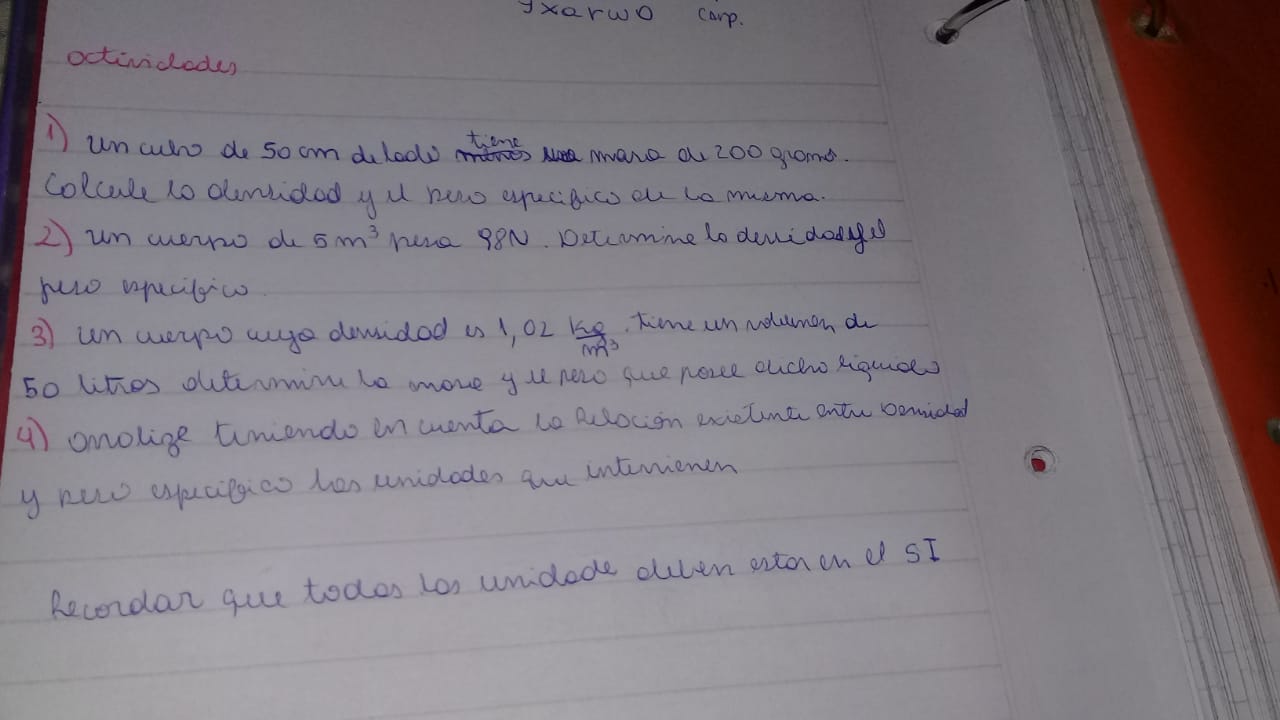 carp.
actividades
1) un cubo de 50 cm de lado tiene masa de 200 gramos.
Calcule la densidad y el peso especifico de la misma.
2) un cuerpo de 5 m³ pesa 98N. Determine la densidad y el
peso especifico
3) un cuerpo cuya densidad es 1,02 kg/m³. tiene un volumen de
50 litros determine la masa y el peso que posee dicho liquido
4) analize teniendo en cuenta la Relación existente entre Densidad
y peso especifico las unidades que intervienen
Recordar que todas las unidade deben estar en el SI